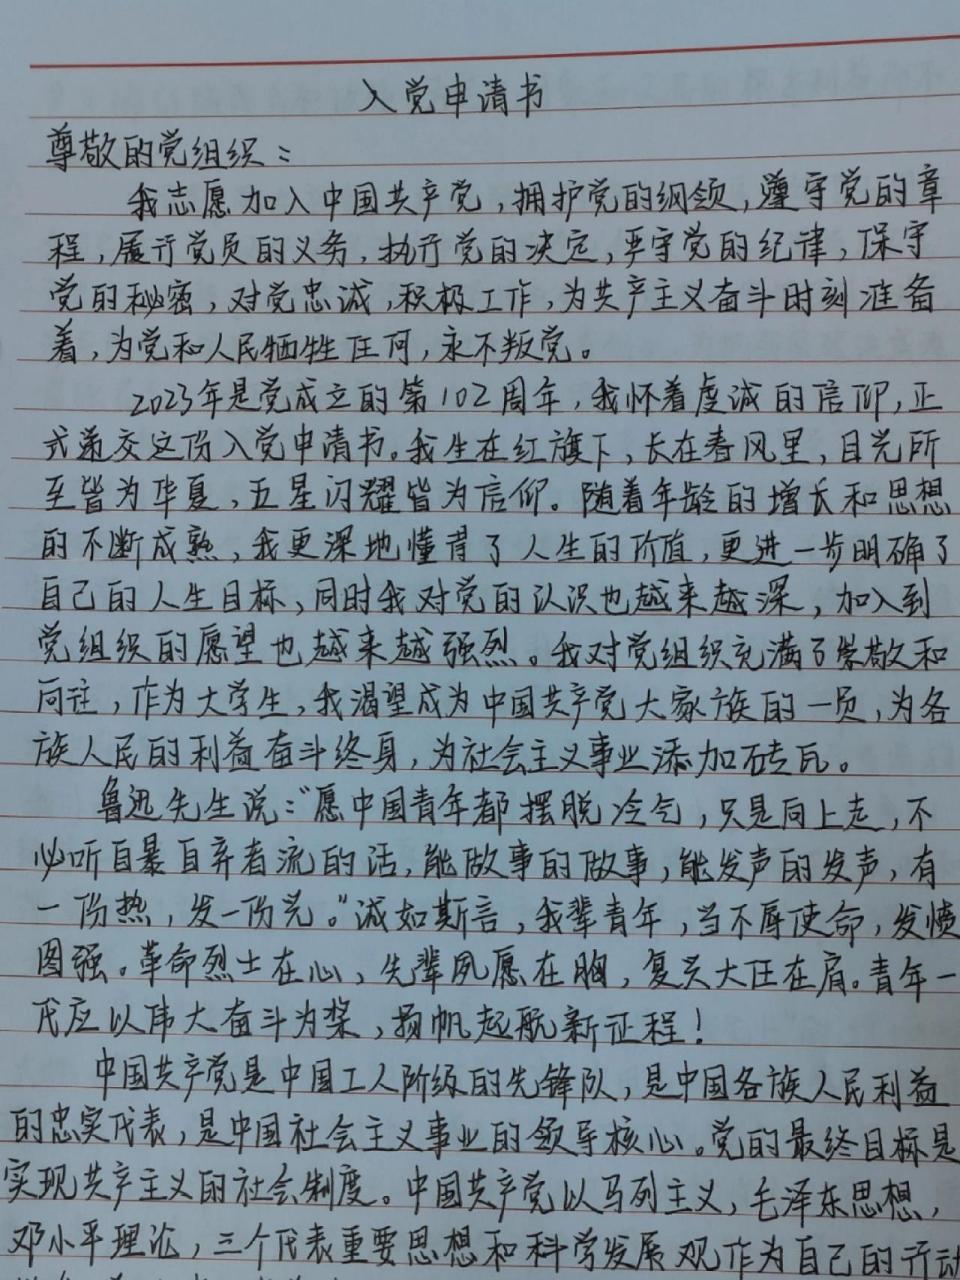 入党申请书
尊敬的党组织：
我志愿加入中国共产党，拥护党的纲领，遵守党的章
程，履行党员的义务，执行党的决定，严守党的纪律，保守
党的秘密，对党忠诚，积极工作，为共产主义奋斗时刻准备
着，为党和人民牺牲任何，永不叛党。
2023年是党成立的第102周年，我怀着虔诚的信仰，正
式递交这份入党申请书。我生在红旗下，长在春风里，目光所
至皆为华夏，五星闪耀皆为信仰。随着年龄的增长和思想
的不断成熟，我更深地懂得了人生的价值，更进一步明确了
自己的人生目标，同时我对党的认识也越来越深，加入到
党组织的愿望也越来越强烈。我对党组织充满了崇敬和
向往，作为大学生，我渴望成为中国共产党大家族的一员，为各
族人民的利益奋斗终身，为社会主义事业添加砖瓦。
鲁迅先生说：“愿中国青年都摆脱冷气，只是向上走，不
必听自暴自弃者流的话，能做事的做事，能发声的发声，有
一份热，发一份光。”诚如斯言，我辈青年，当不辱使命，发愤
图强。革命烈士在心，先辈夙愿在胸，复兴大任在肩。青年一
代应以伟大奋斗为桨，扬帆起航新征程！
中国共产党是中国工人阶级的先锋队，是中国各族人民利益
的忠实代表，是中国社会主义事业的领导核心。党的最终目标是
实现共产主义的社会制度。中国共产党以马列主义，毛泽东思想，
邓小平理论，三个代表重要思想和科学发展观作为自己的行动